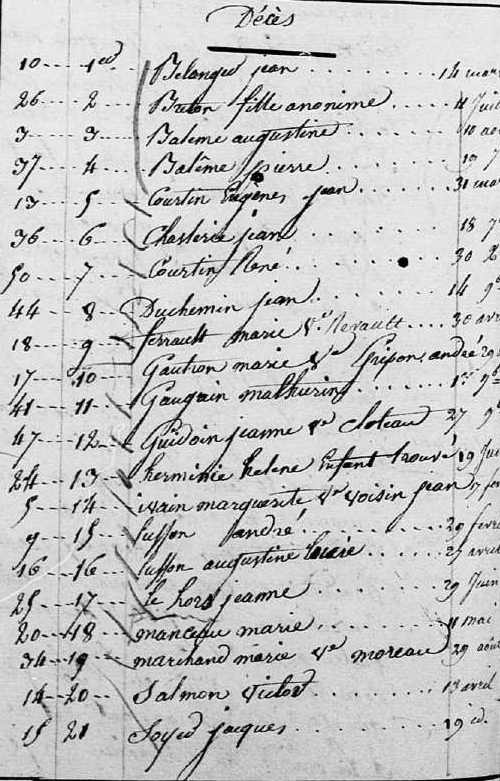 Décès
10 1er Belanger jean 14 mars
26 2 Breton fille anonime 4 Juil
3 3 Baleme augustine 10 aoû
37 4 Balême pierre 19 7
13 5 Courtin Eugènes jean 31 mar
36 6 jean 18 7
50 7 Courtin René 30 X
44 8 Duchemin jean 14 9b
18 9 ferrault marie Ve Renault 30 avr
17 10 Gaution marie Ve Gripon andré 29
41 11 Gaugain mathurin 15 9b
47 12 Guidoin jeanne ve cloteau 27 9b
24 13 herminie helene Enfant trouvé 19 Jui
5 14 ivain marguerite Ve voisin jean 7 fev
9 15 Lusson andré 20 fevri
16 16 Lusson augustine 27 avril
25 17 Le hors jeanne 29 Juin
20 18 manceau marie 11 mai
34 19 marchand marie Ve moreau 29 aout
14 20 Salmon Victor 13 avril
15 21 Soyer jacques 19 id.